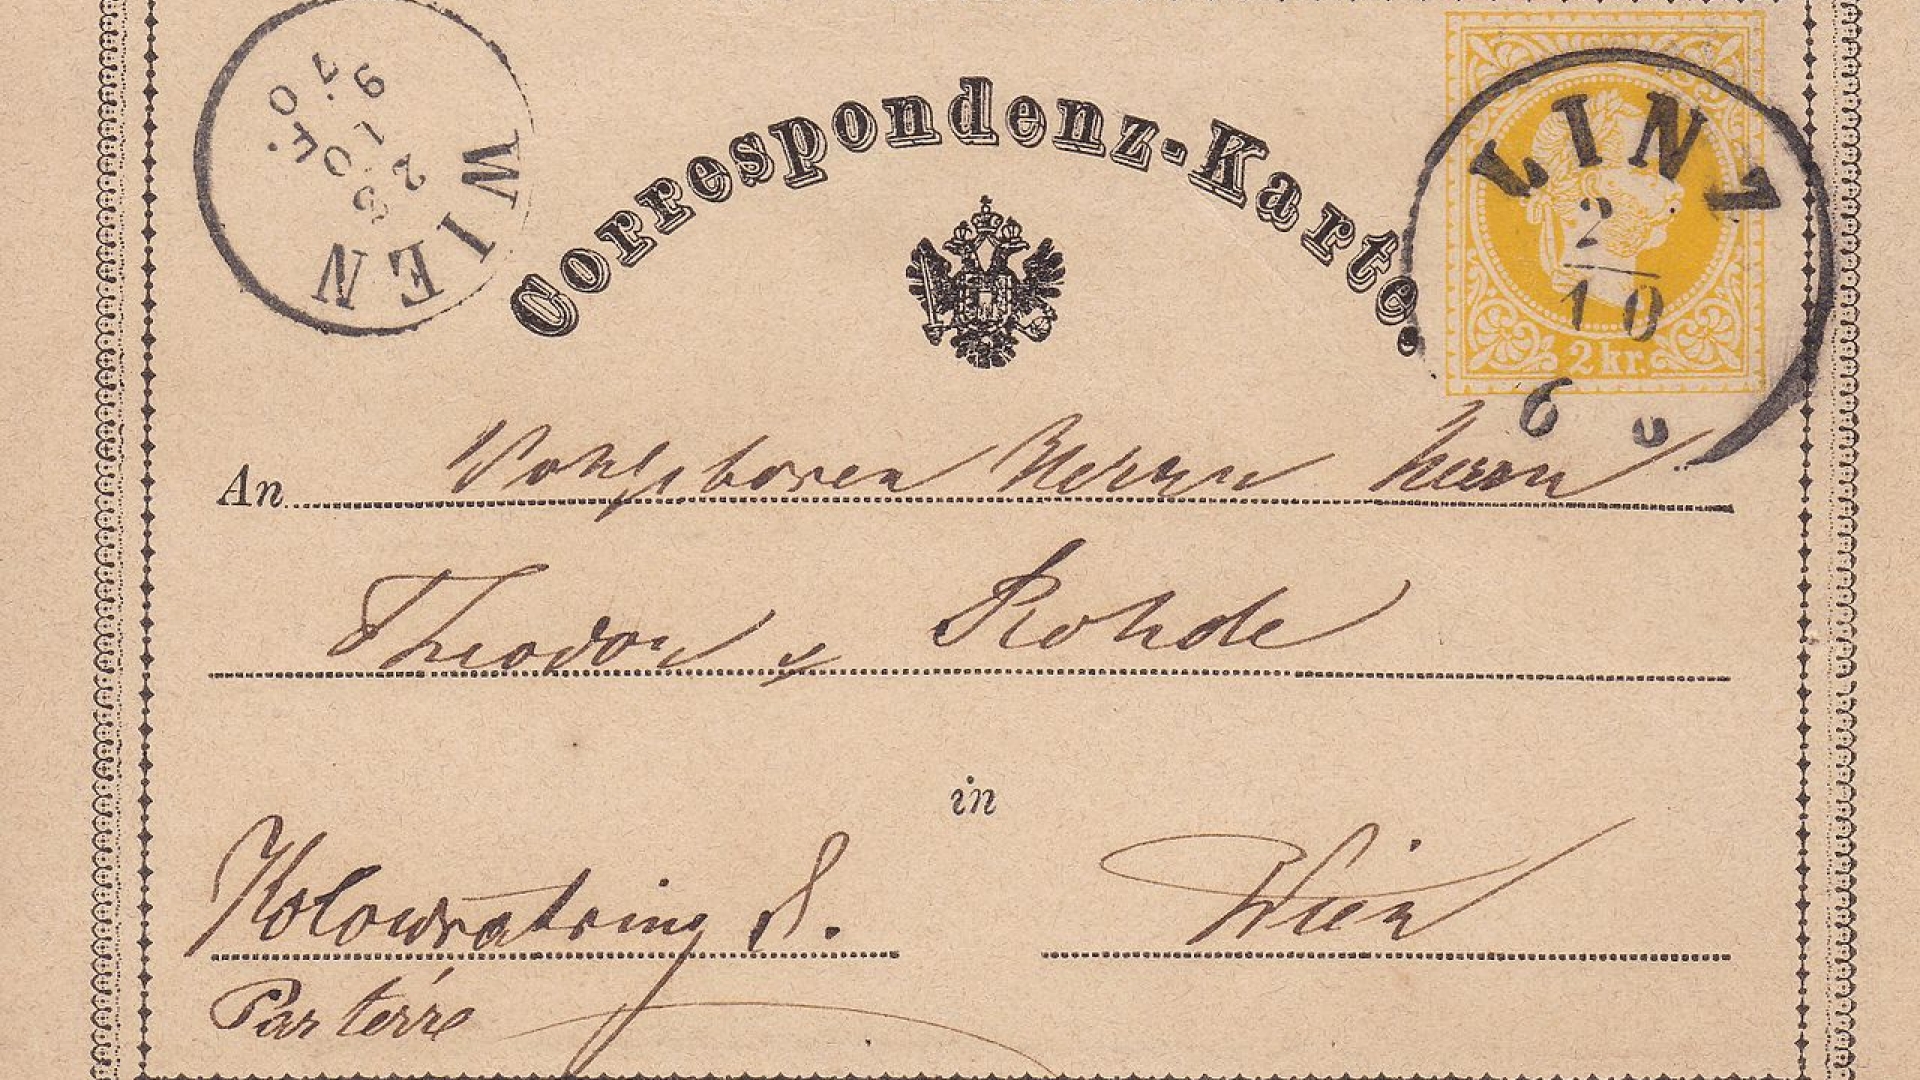 WIEN
Correspondenz-Karte.
LINZ
2
10
6
2 kr.
An Wohlgeboren Herrn Herrn
Theodor v Rohde
in
Kolowratring 8. Wien
Parterre